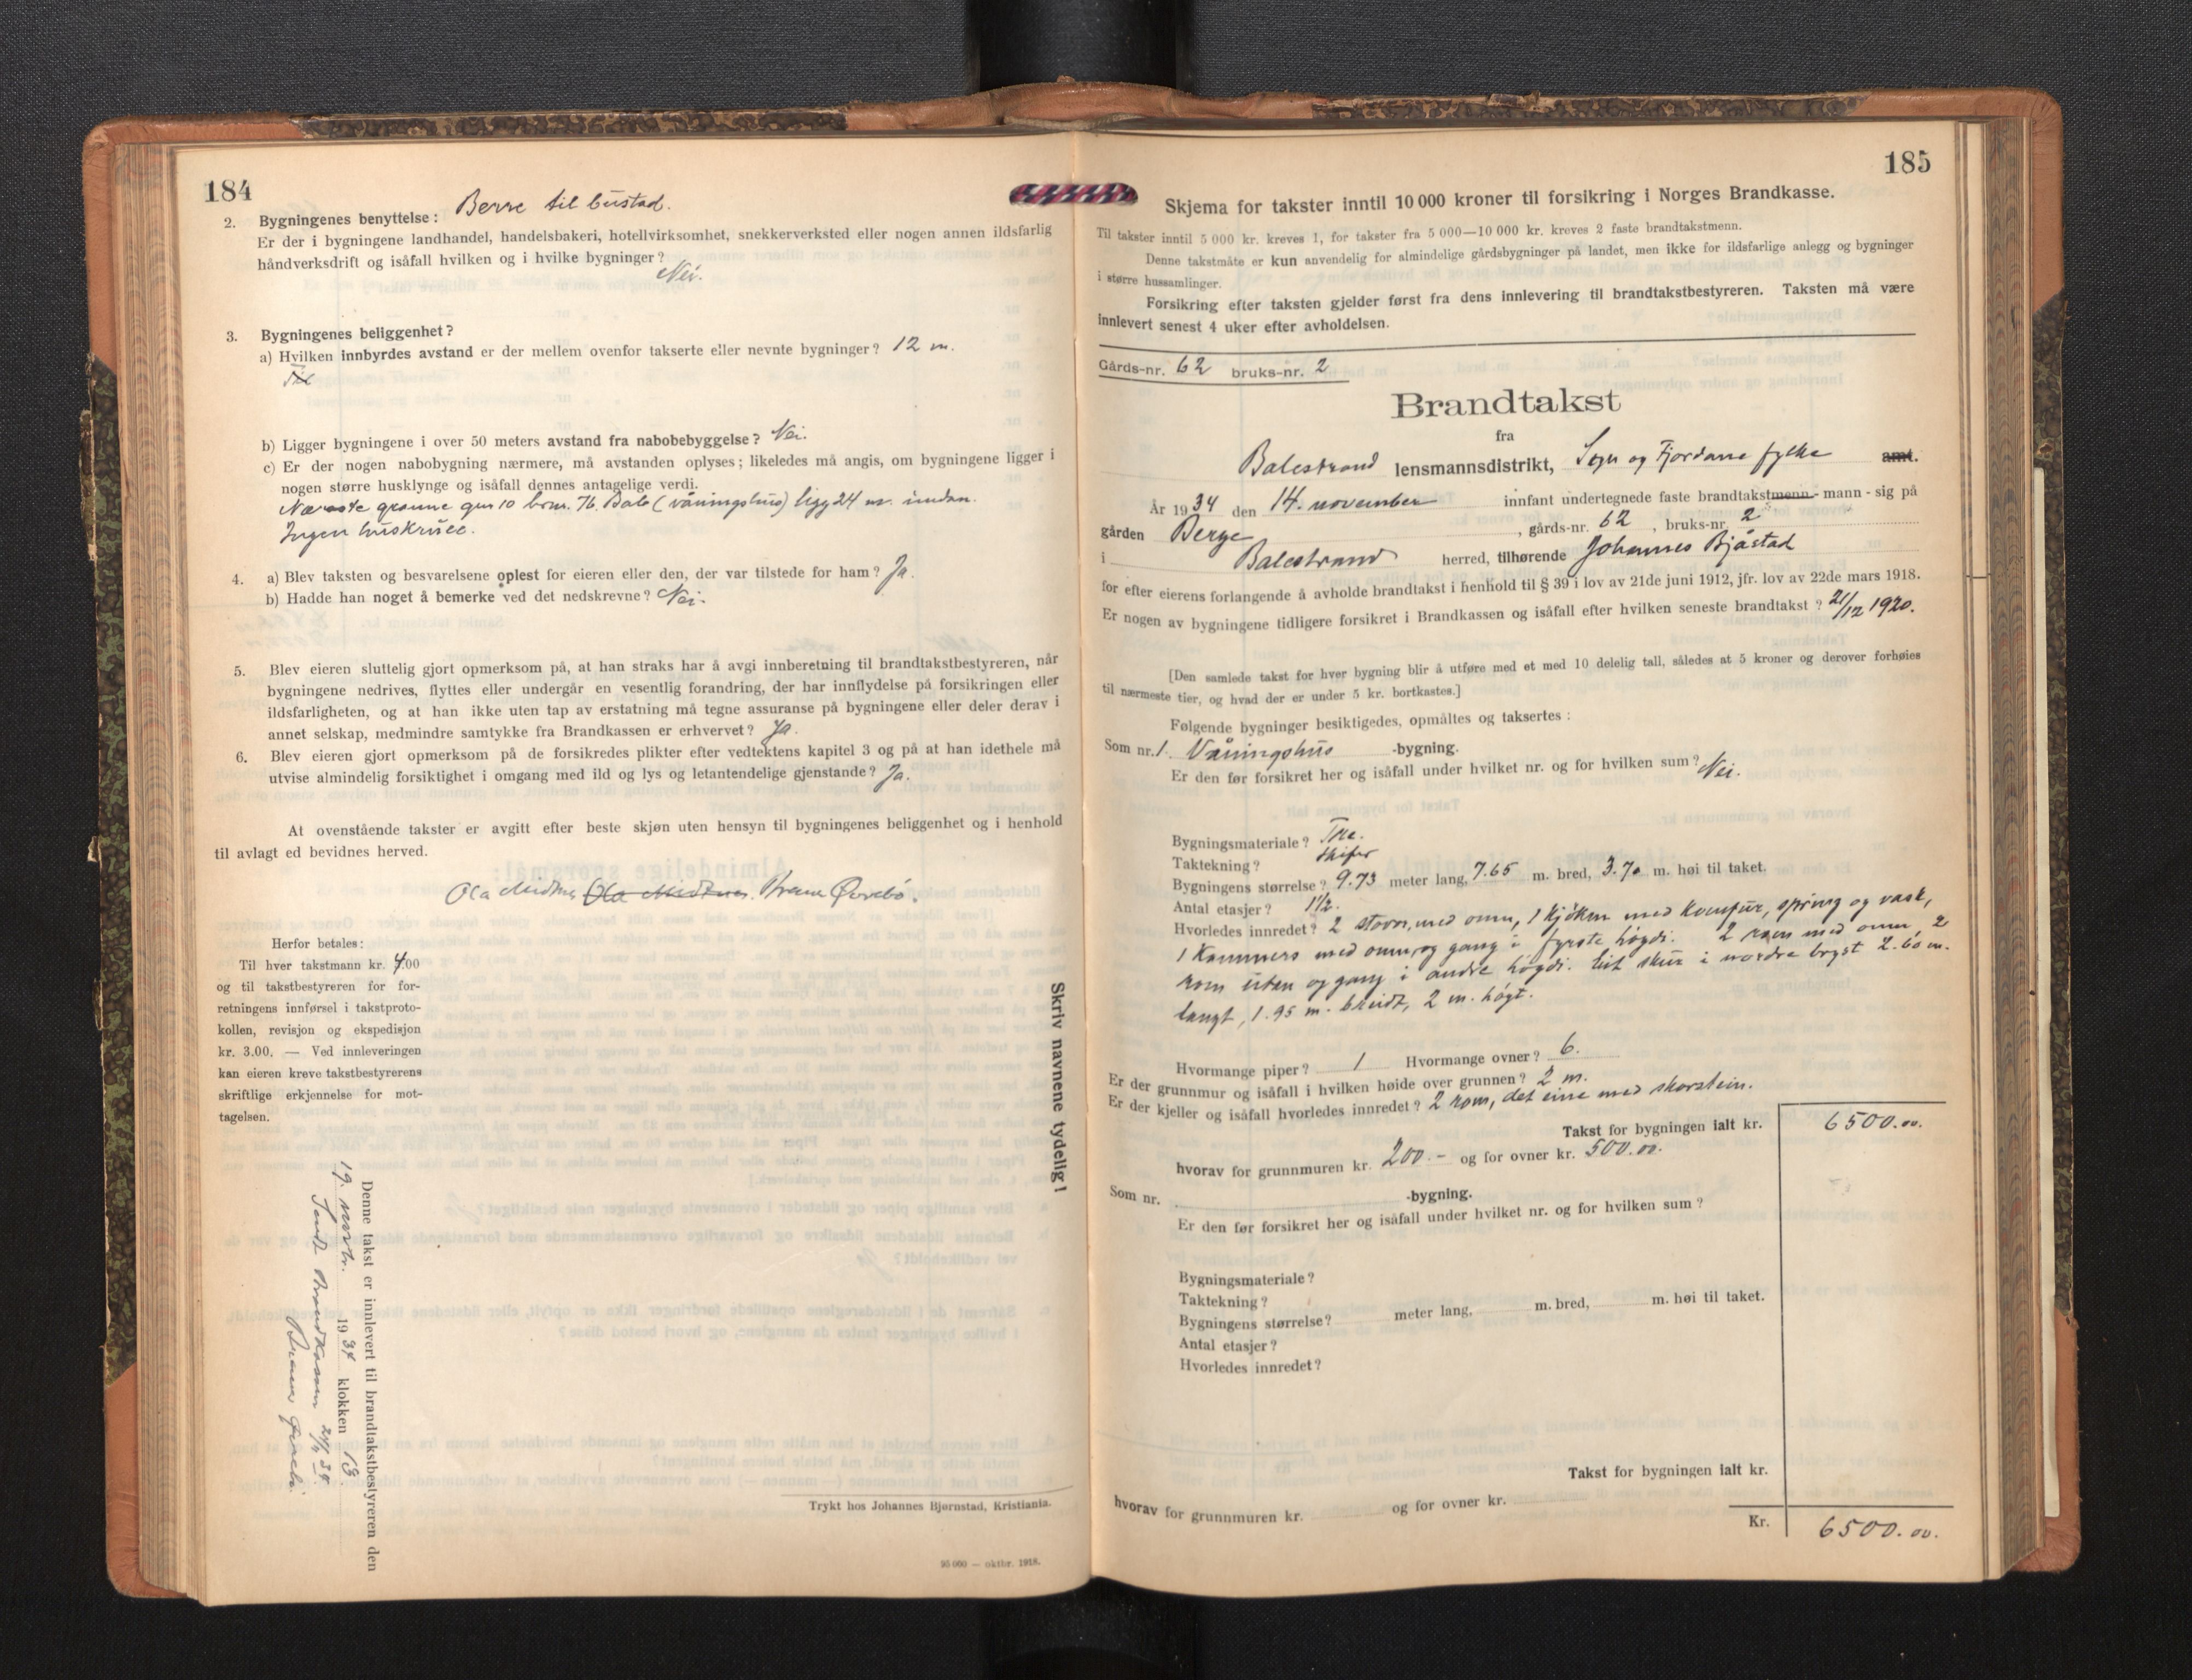 184
2. Bygningenes benyttelse: Berre til bustad.
Er der i bygningene landhandel, handelsbakeri, hotellvirksomhet, snekkerverksted eller nogen annen ildsfarlig
håndverksdrift og isåfall hvilken og i hvilke bygninger?
Nei.
3. Bygningenes beliggenhet?
a) Hvilken innbyrdes avstand er der mellem ovenfor takserte eller nevnte bygninger? 12 m.
b) Ligger bygningene i over 50 meters avstand fra nabobebyggelse? Nei.
c) Er der nogen nabobygning nærmere, må avstanden oplyses; likeledes må angis, om bygningene ligger i
nogen større husklynge og isåfall dennes antagelige verdi.
Næraste granne gnr 10 brnr. 76. Bale (våningshus) ligg 24 m. undan.
Ingen huskrull.
4. a) Blev taksten og besvarelsene oplest for eieren eller den, der var tilstede for ham? Ja.
b) Hadde han noget å bemerke ved det nedskrevne? Nei.
5. Blev eieren sluttelig gjort opmerksom på, at han straks har å avgi innberetning til brandtakstbestyreren, når
bygningene nedrives, flyttes eller undergår en vesentlig forandring, der har innflydelse på forsikringen eller
ildsfarligheten, og at han ikke uten tap av erstatning må tegne assuranse på bygningene eller deler derav i
annet selskap, medmindre samtykke fra Brandkassen er erhvervet? Ja.
6. Blev eieren gjort opmerksom på de forsikredes plikter efter vedtektens kapitel 3 og på at han idethele må
utvise almindelig forsiktighet i omgang med ild og lys og letantendelige gjenstande? Ja.
At ovenstående takster er avgitt efter beste skjøn uten hensyn til bygningenes beliggenhet og i henhold
til avlagt ed bevidnes herved.
Ola Midtnes Ola Midtnes. Øvrebø.
Herfor betales:
Til hver takstmann kr. 4.00
og til takstbestyreren for for-
retningens innførsel i takstproto-
kollen, revisjon og ekspedisjon
kr. 3.00. — Ved innleveringen
kan eieren kreve takstbestyrerens
skriftlige erkjennelse for mot-
tagelsen.
Skriv navnene tydelig!
Denne takst er innlevert til brandtakstbestyreren den
19. novbr. 1934 klokken 13.
Sendt Brandkassen 24/11 34.
Trykt hos Johannes Bjørnstad, Kristiania.
95 000 — oktbr. 1918.
185
Skjema for takster inntil 10 000 kroner til forsikring i Norges Brandkasse.
Til takster inntil 5 000 kr. kreves 1, for takster fra 5 000—10 000 kr. kreves 2 faste brandtakstmenn.
Denne takstmåte er kun anvendelig for almindelige gårdsbygninger på landet, men ikke for ildsfarlige anlegg og bygninger
i større hussamlinger.
Forsikring efter taksten gjelder først fra dens innlevering til brandtakstbestyreren. Taksten må være
innlevert senest 4 uker efter avholdelsen.
Gårds-nr. 62 bruks-nr. 2
Brandtakst
fra
Balestrand lensmannsdistrikt, Sogn og Fjordane fylke amt.
År 1934 den 14. november innfant undertegnede faste brandtakstmenn - mann - sig på
gården Berge, gårds-nr. 62, bruks-nr. 2
i Balestrand herred, tilhørende Johannes Bjåstad
for efter eierens forlangende å avholde brandtakst i henhold til § 39 i lov av 21de juni 1912, jfr. lov av 22de mars 1918.
Er nogen av bygningene tidligere forsikret i Brandkassen og isåfall efter hvilken seneste brandtakst? 21/12 1920.
[Den samlede takst for hver bygning blir å utføre med et med 10 delelig tall, således at 5 kroner og derover forhøies
til nærmeste tier, og hvad der er under 5 kr. bortkastes.]
Følgende bygninger besiktigedes, opmåltes og taksertes:
Som nr. 1. Våningshus -bygning.
Er den før forsikret her og isåfall under hvilket nr. og for hvilken sum? Nei.
Bygningsmateriale? Tre.
Taktekning? Skifer
Bygningens størrelse? 9.73 meter lang, 7.65 m. bred, 3.70 m. høi til taket.
Antal etasjer? 1 1/2.
Hvorledes innredet? 2 stovor, med omn, 1 kjøken med komfur, spring og vask,
1 kammers med omn, og gang i fyrste høgdi. 2 rom med omn, 2
rom utan og gang i andre høgdi. Eit skur i nordre bryst 2.60 m.
langt, 1.95 m. breidt, 2 m. høgt.
Hvormange piper? 1 Hvormange ovner? 6.
Er der grunnmur og isåfall i hvilken høide over grunnen? 2 m.
Er der kjeller og isåfall hvorledes innredet? 2 rom, det eine med skorstein.
Takst for bygningen ialt kr. 6500.00.
hvorav for grunnmuren kr. 200.- og for ovner kr. 500.00.
Som nr. -bygning.
Er den før forsikret her og isåfall under hvilket nr. og for hvilken sum?
Bygningsmateriale?
Taktekning?
Bygningens størrelse? meter lang, m. bred, m. høi til taket.
Antal etasjer?
Hvorledes innredet?
Takst for bygningen ialt kr.
hvorav for grunnmuren kr. og for ovner kr.
Kr. 6500.00.